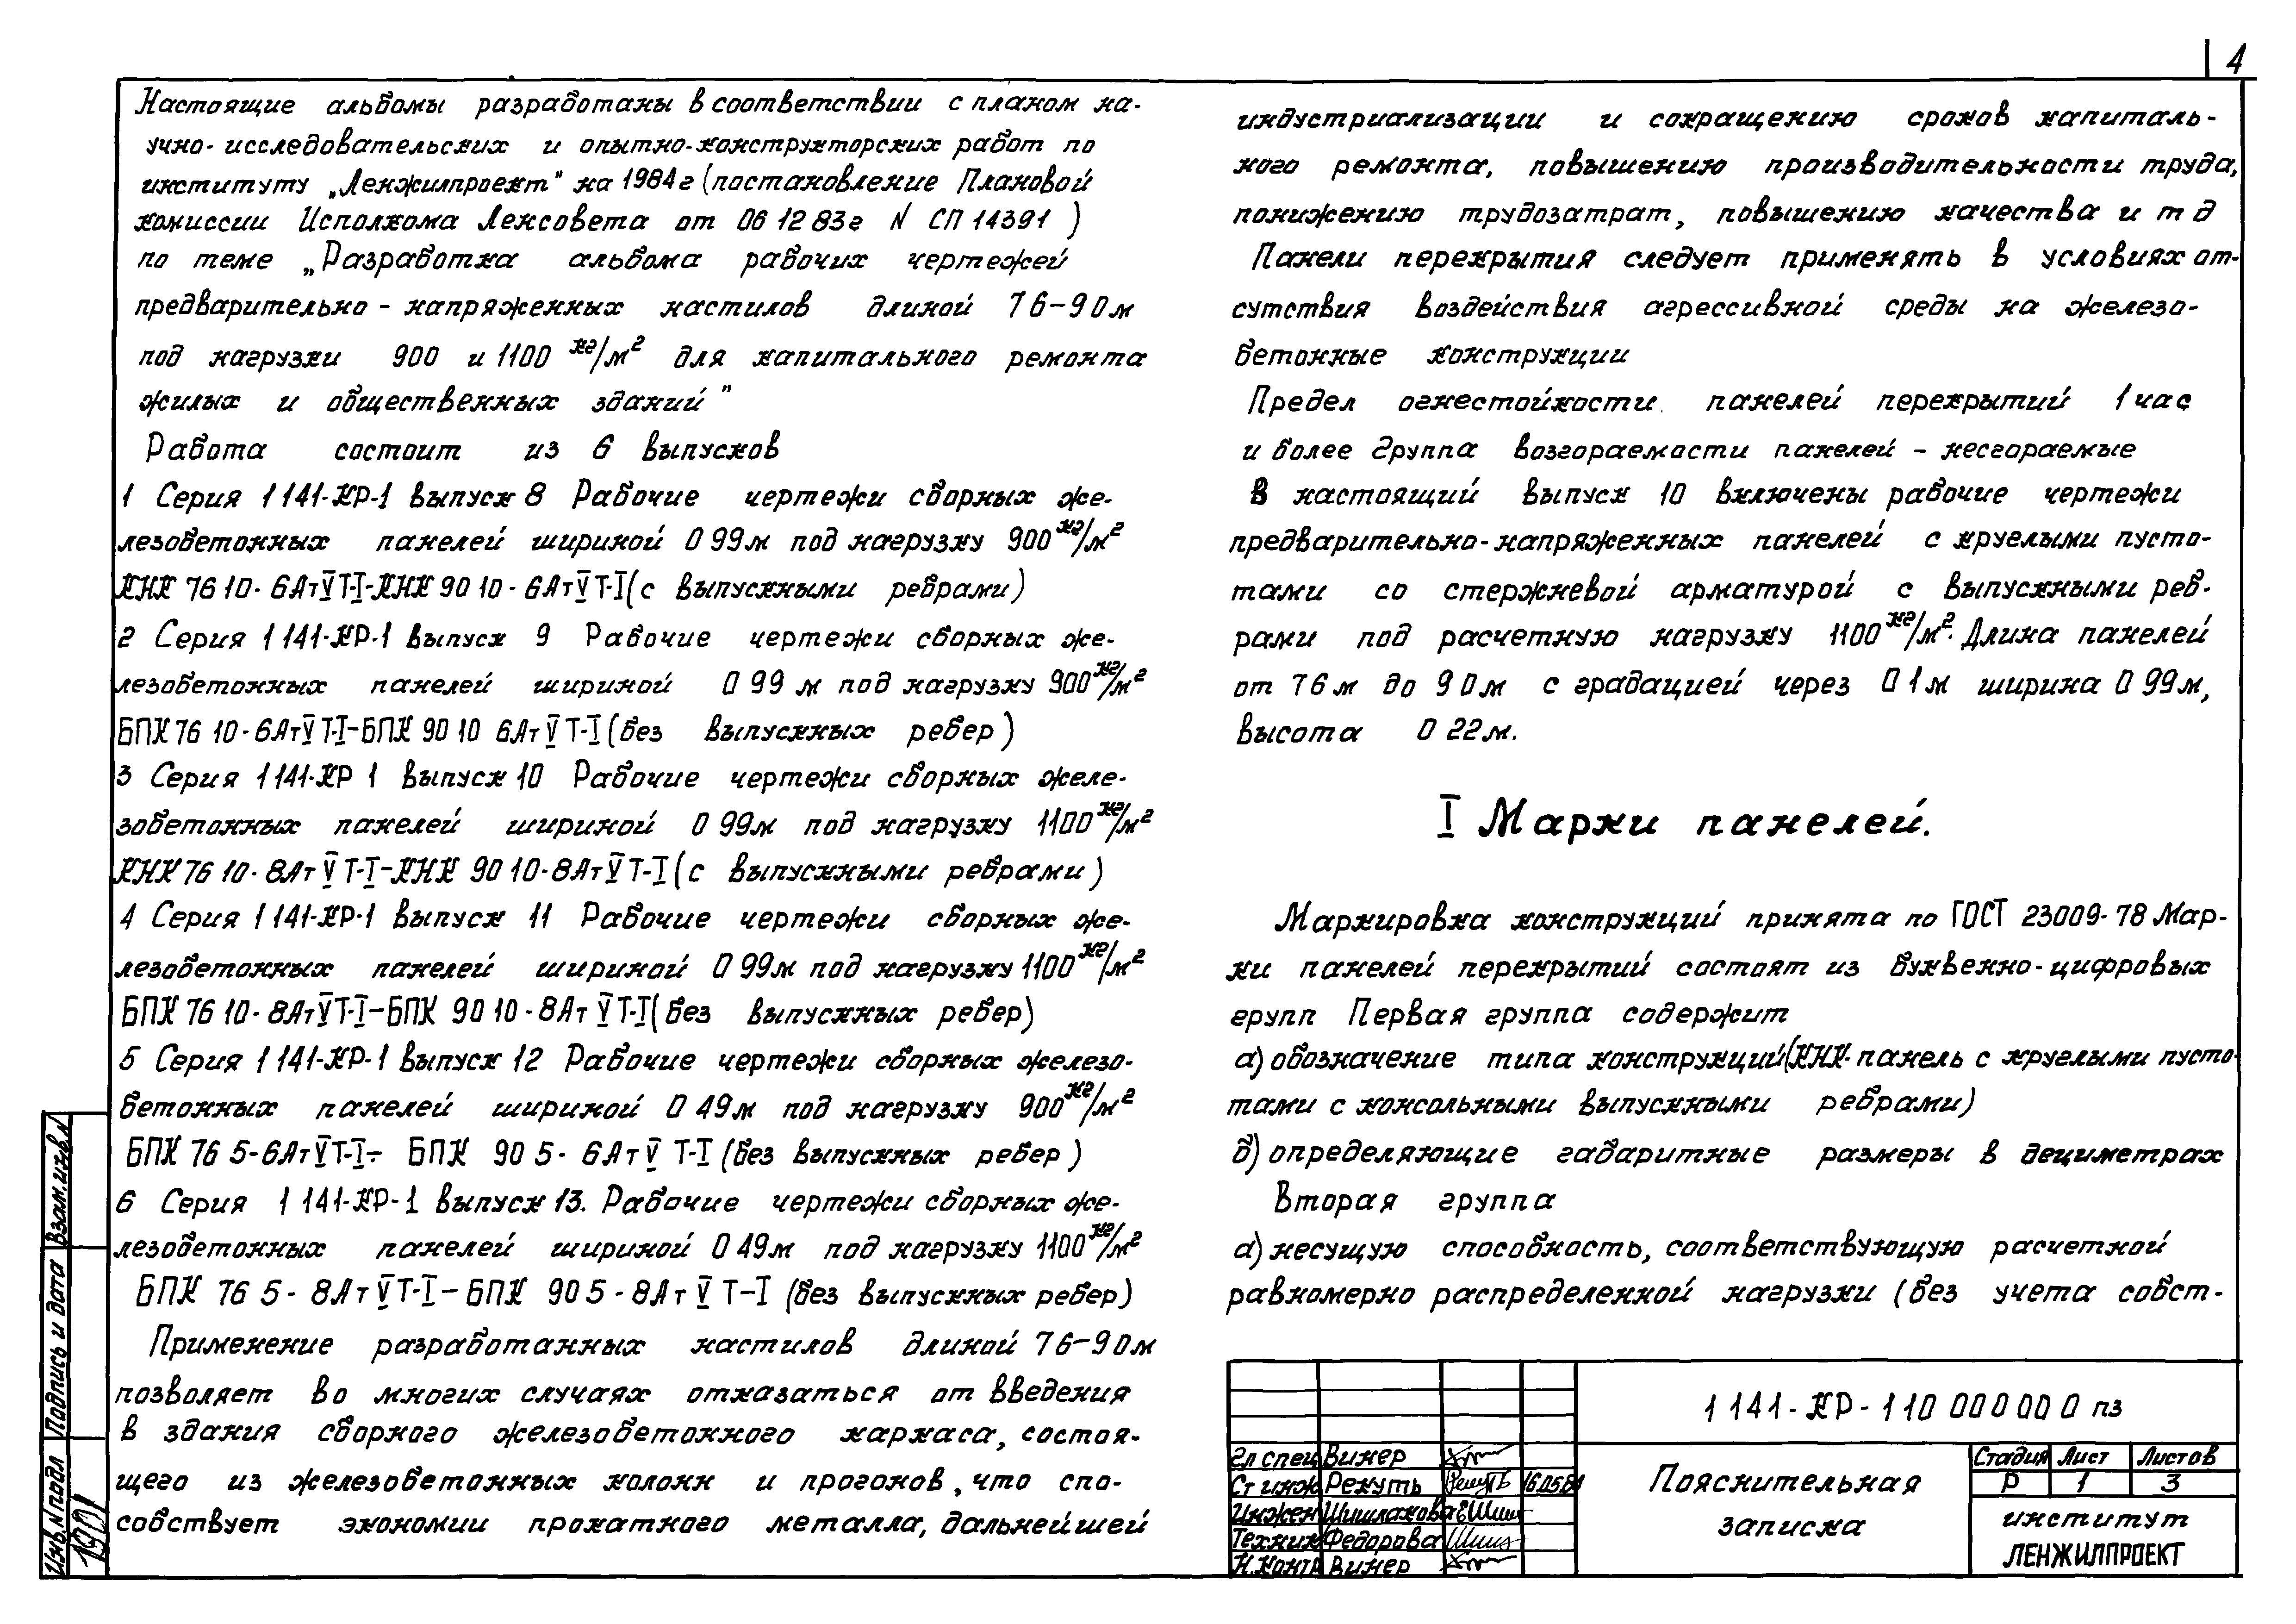 4
Настоящие альбомы разработаны в соответствии с планом на-
учно-исследовательских и опытно-конструкторских работ по
институту „Ленжилпроект" на 1984г (постановление Плановой
комиссии Исполкома Ленсовета от 06 12 83г N СП 14391 )
по теме „Разработка альбома рабочих чертежей
предварительно - напряженных настилов длиной 7 6-9 0м
под нагрузки 900 и 1100 кг/м² для капитального ремонта
жилых и общественных зданий"
Работа состоит из 6 выпусков
1 Серия 1 141-КР-1 выпуск 8 Рабочие чертежи сборных же-
лезобетонных панелей шириной 0 99м под нагрузку 900 кг/м²
КНК 76 10- 6АтV Т-I-КНК 90 10 - 6АтV Т-I (с выпускными ребрами)
2 Серия 1 141-КР-1 выпуск 9 Рабочие чертежи сборных же-
лезобетонных панелей шириной 0 99 м под нагрузку 900 кг/м²
БПК 76 10-6АтV Т-I-БПК 90 10 6Ат V Т-I (без выпускных ребер)
3 Серия 1 141-КР 1 выпуск 10 Рабочие чертежи сборных желе-
зобетонных панелей шириной 0 99м под нагрузку 1100 кг/м²
КНК 76 10- 8Ат V Т-I-КНК 90 10-8Ат V Т-I (с выпускными ребрами)
4 Серия 1 141-КР-1 выпуск 11 Рабочие чертежи сборных же-
лезобетонных панелей шириной 0 99м под нагрузку 1100 кг/м²
БПК 76 10- 8АтV Т-I-БПК 90 10 -8Ат V Т-I (без выпускных ребер)
5 Серия 1 141-КР-1 выпуск 12 Рабочие чертежи сборных железо-
бетонных панелей шириной 0 49м под нагрузку 900 кг/м²
БПК 76 5-6АтV Т-I- БПК 90 5- 6Ат V Т-I (без выпускных ребер )
6 Серия 1 141-КР-1 выпуск 13. Рабочие чертежи сборных же-
лезобетонных панелей шириной 0 49м под нагрузку 1100 кг/м²
БПК 76 5- 8Ат V Т-I - БПК 90 5 - 8Ат V Т-I (без выпускных ребер)
Применение разработанных настилов длиной 7 6-9 0м
позволяет во многих случаях отказаться от введения
в здания сборного железобетонного каркаса, состоя-
щего из железобетонных колонн и прогонов, что спо-
собствует экономии прокатного металла, дальнейшей
индустриализации и сокращению сроков капиталь-
ного ремонта, повышению производительности труда,
понижению трудозатрат, повышению качества и т д
Панели перекрытия следует применять в условиях от-
сутствия воздействия агрессивной среды на железо-
бетонные конструкции
Предел огнестойкости панелей перекрытий 1 час
и более Группа возгораемости панелей - несгораемые
В настоящий выпуск 10 включены рабочие чертежи
предварительно-напряженных панелей с круглыми пусто-
тами со стержневой арматурой с выпускными реб-
рами под расчетную нагрузку 1100 кг/м². Длина панелей
от 7 6 м до 9 0м с градацией через 0 1м ширина 0 99м,
высота 0 22м.
I Марки панелей.
Маркировка конструкций принята по ГОСТ 23009-78 Мар-
ки панелей перекрытий состоят из буквенно-цифровых
групп Первая группа содержит
а) обозначение типа конструкций (КНК-панель с круглыми пусто-
тами с консольными выпускными ребрами)
б) определяющие габаритные размеры в дециметрах
Вторая группа
а) несущую способность, соответствующую расчетной
равномерно распределенной нагрузки (без учета собст-
1 141-КР-1 10 000 00 0 пз
Гл спец Винер
Ст инж Рекуть 16.05.84
Инжен Шишлакова
Техник Федорова
Н.контр Винер
Пояснительная
записка
Стадия Лист Листов
Р 1 3
институт
ЛЕНЖИЛПРОЕКТ
Взам.инв.N
Подпись и дата
Инв.N подл